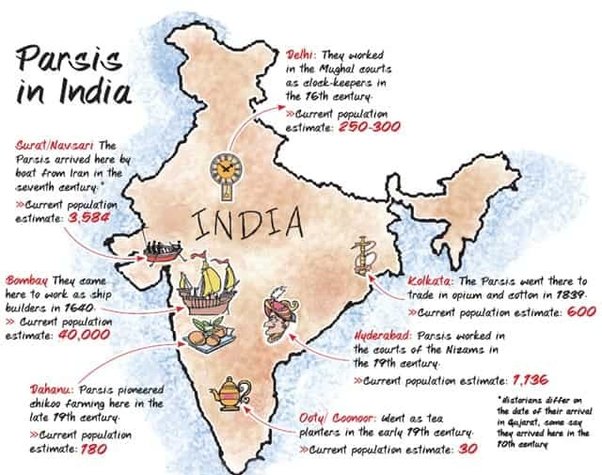 Parsis
in India
Delhi: They worked
in the Mughal courts
as clock-keepers in
the 16th century.
»Current population
estimate: 250-300
Surat/Navsari The
Parsis arrived here by
boat from Iran in the
seventh century.*
»Current population
estimate: 3,584
INDIA
Bombay They came
here to work as ship
builders in 1640.
» Current population
estimate: 40,000
Kolkata: The Parsis went there to
trade in opium and cotton in 1839.
»Current population estimate: 600
Hyderabad: Parsis worked in
the courts of the Nizams in
the 19th century.
»Current population estimate: 1,136
Dahanu: Parsis pioneered
chikoo farming here in the
late 19th century.
»Current population
estimate: 180
Ooty/ Coonoor: Went as tea
planters in the early 19th century.
»Current population estimate: 30
*Historians differ on
the date of their arrival
in Gujarat, some say
they arrived here in the
10th century